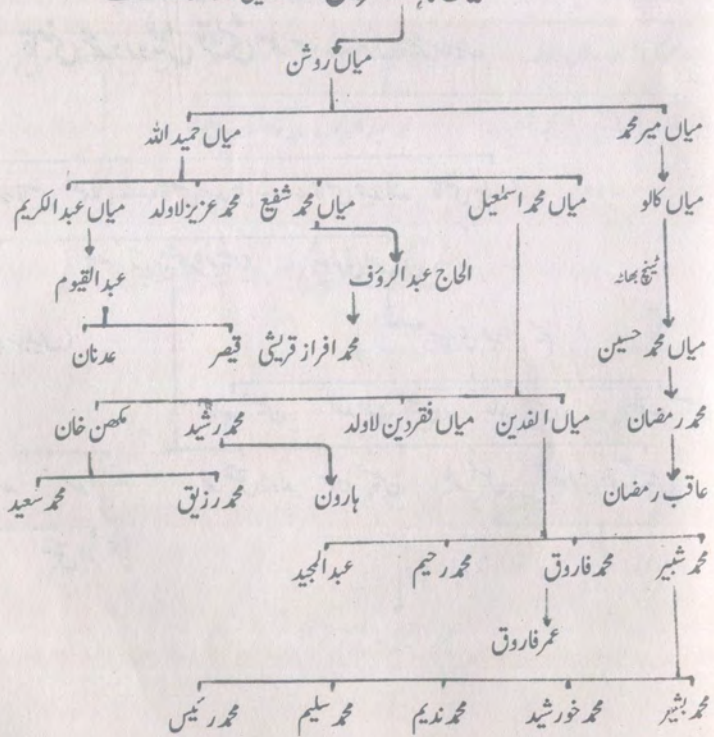 میاں روشن
میاں میر محمد میاں حمید اللہ
میاں کالو میاں محمد اسمٰعیل میاں محمد شفیع محمد عزیز لاولد میاں عبدالکریم
ٹینچ بھاٹہ الحاج عبدالرؤف عبدالقیوم
میاں محمد حسین محمد افراز قریشی قیصر عدنان
محمد رمضان میاں الفدین میاں فقردین لاولد محمد رشید مکھن خان
عاقب رمضان ہارون محمد رزیق محمد سعید
محمد شبیر محمد فاروق محمد رحیم عبدالمجید
عمر فاروق
محمد بشیر محمد خورشید محمد ندیم محمد سلیم محمد رئیس